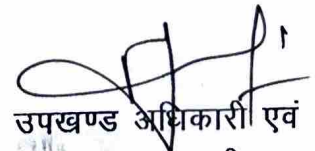 उपखण्ड अधिकारी एवं